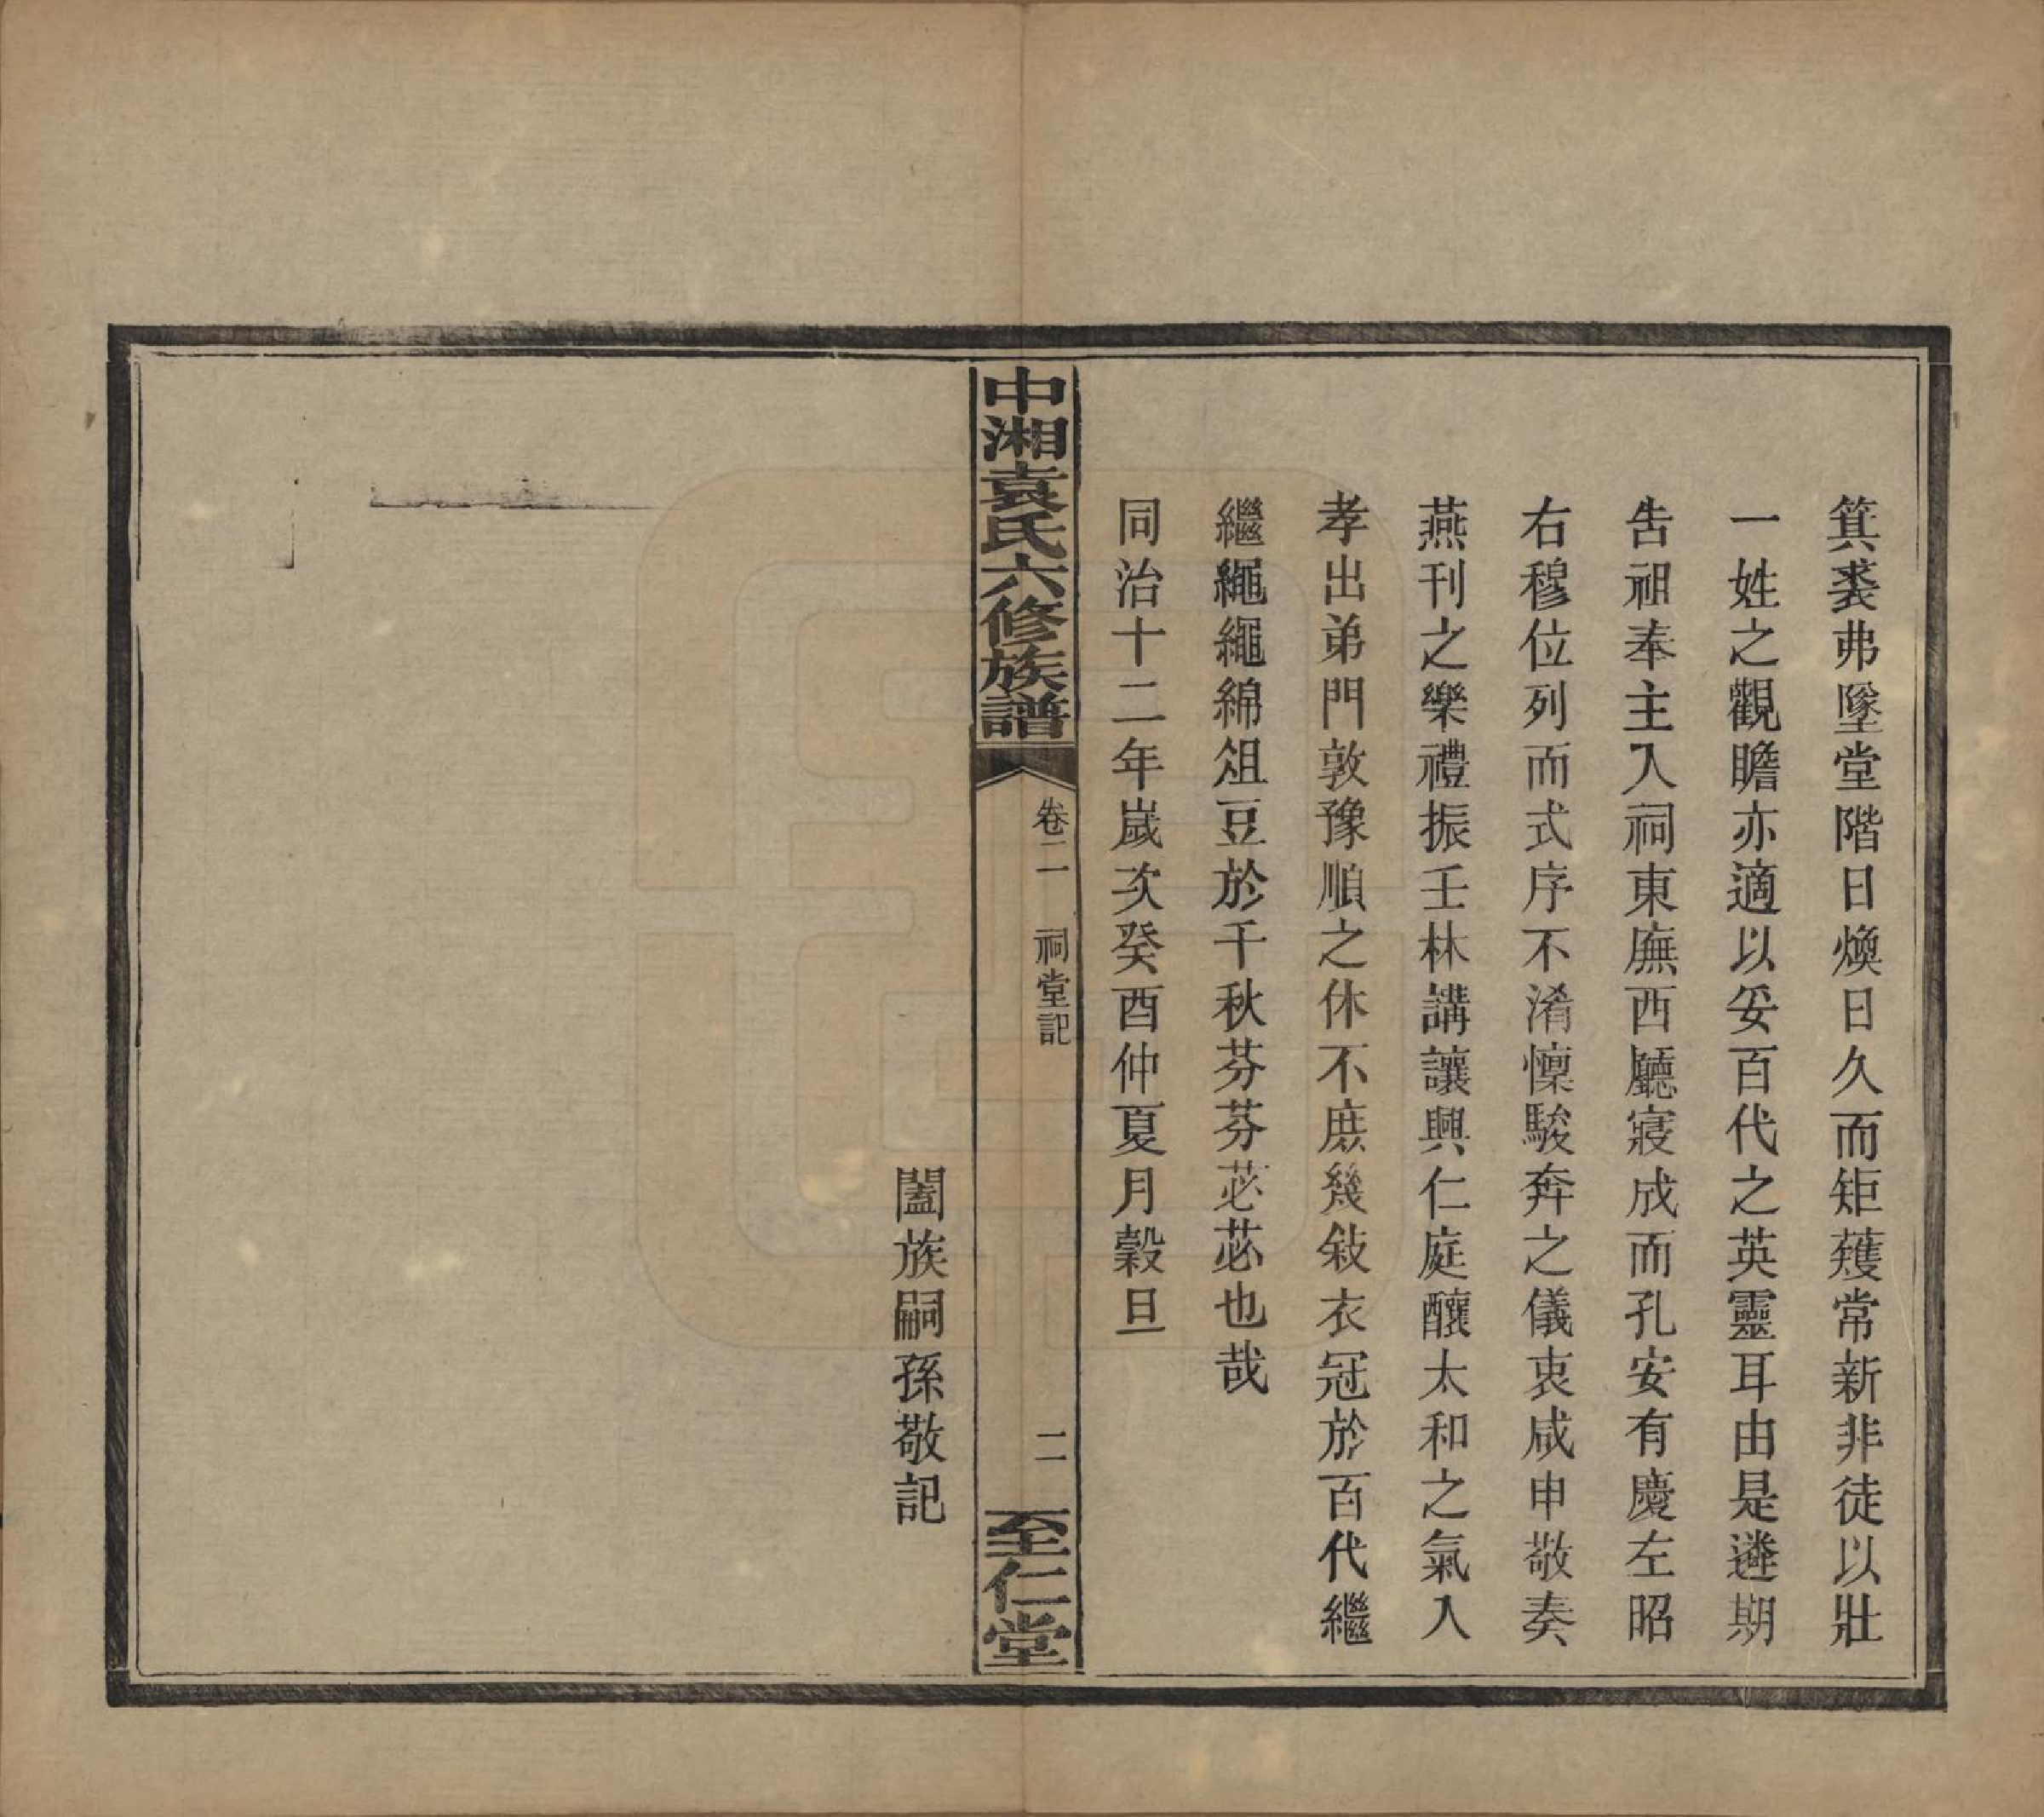 箕裘弗墜堂階日煥日久而矩矱常新非徒以壯
一姓之觀瞻亦適以妥百代之英靈耳由是遴期
告祖奉主入祠東廡西廳寢成而孔安有慶左昭
右穆位列而式序不淆懍駿奔之儀衷咸申敬奏
燕刊之樂禮振壬林講讓興仁庭釀太和之氣入
孝出弟門敦豫順之休不庶幾敍衣冠於百代繼
繼繩繩綿俎豆於千秋芬芬苾苾也哉
同治十二年歲次癸酉仲夏月穀旦
中湘袁氏六修族譜
卷二 祠堂記
二
至仁堂
闔族嗣孫敬記